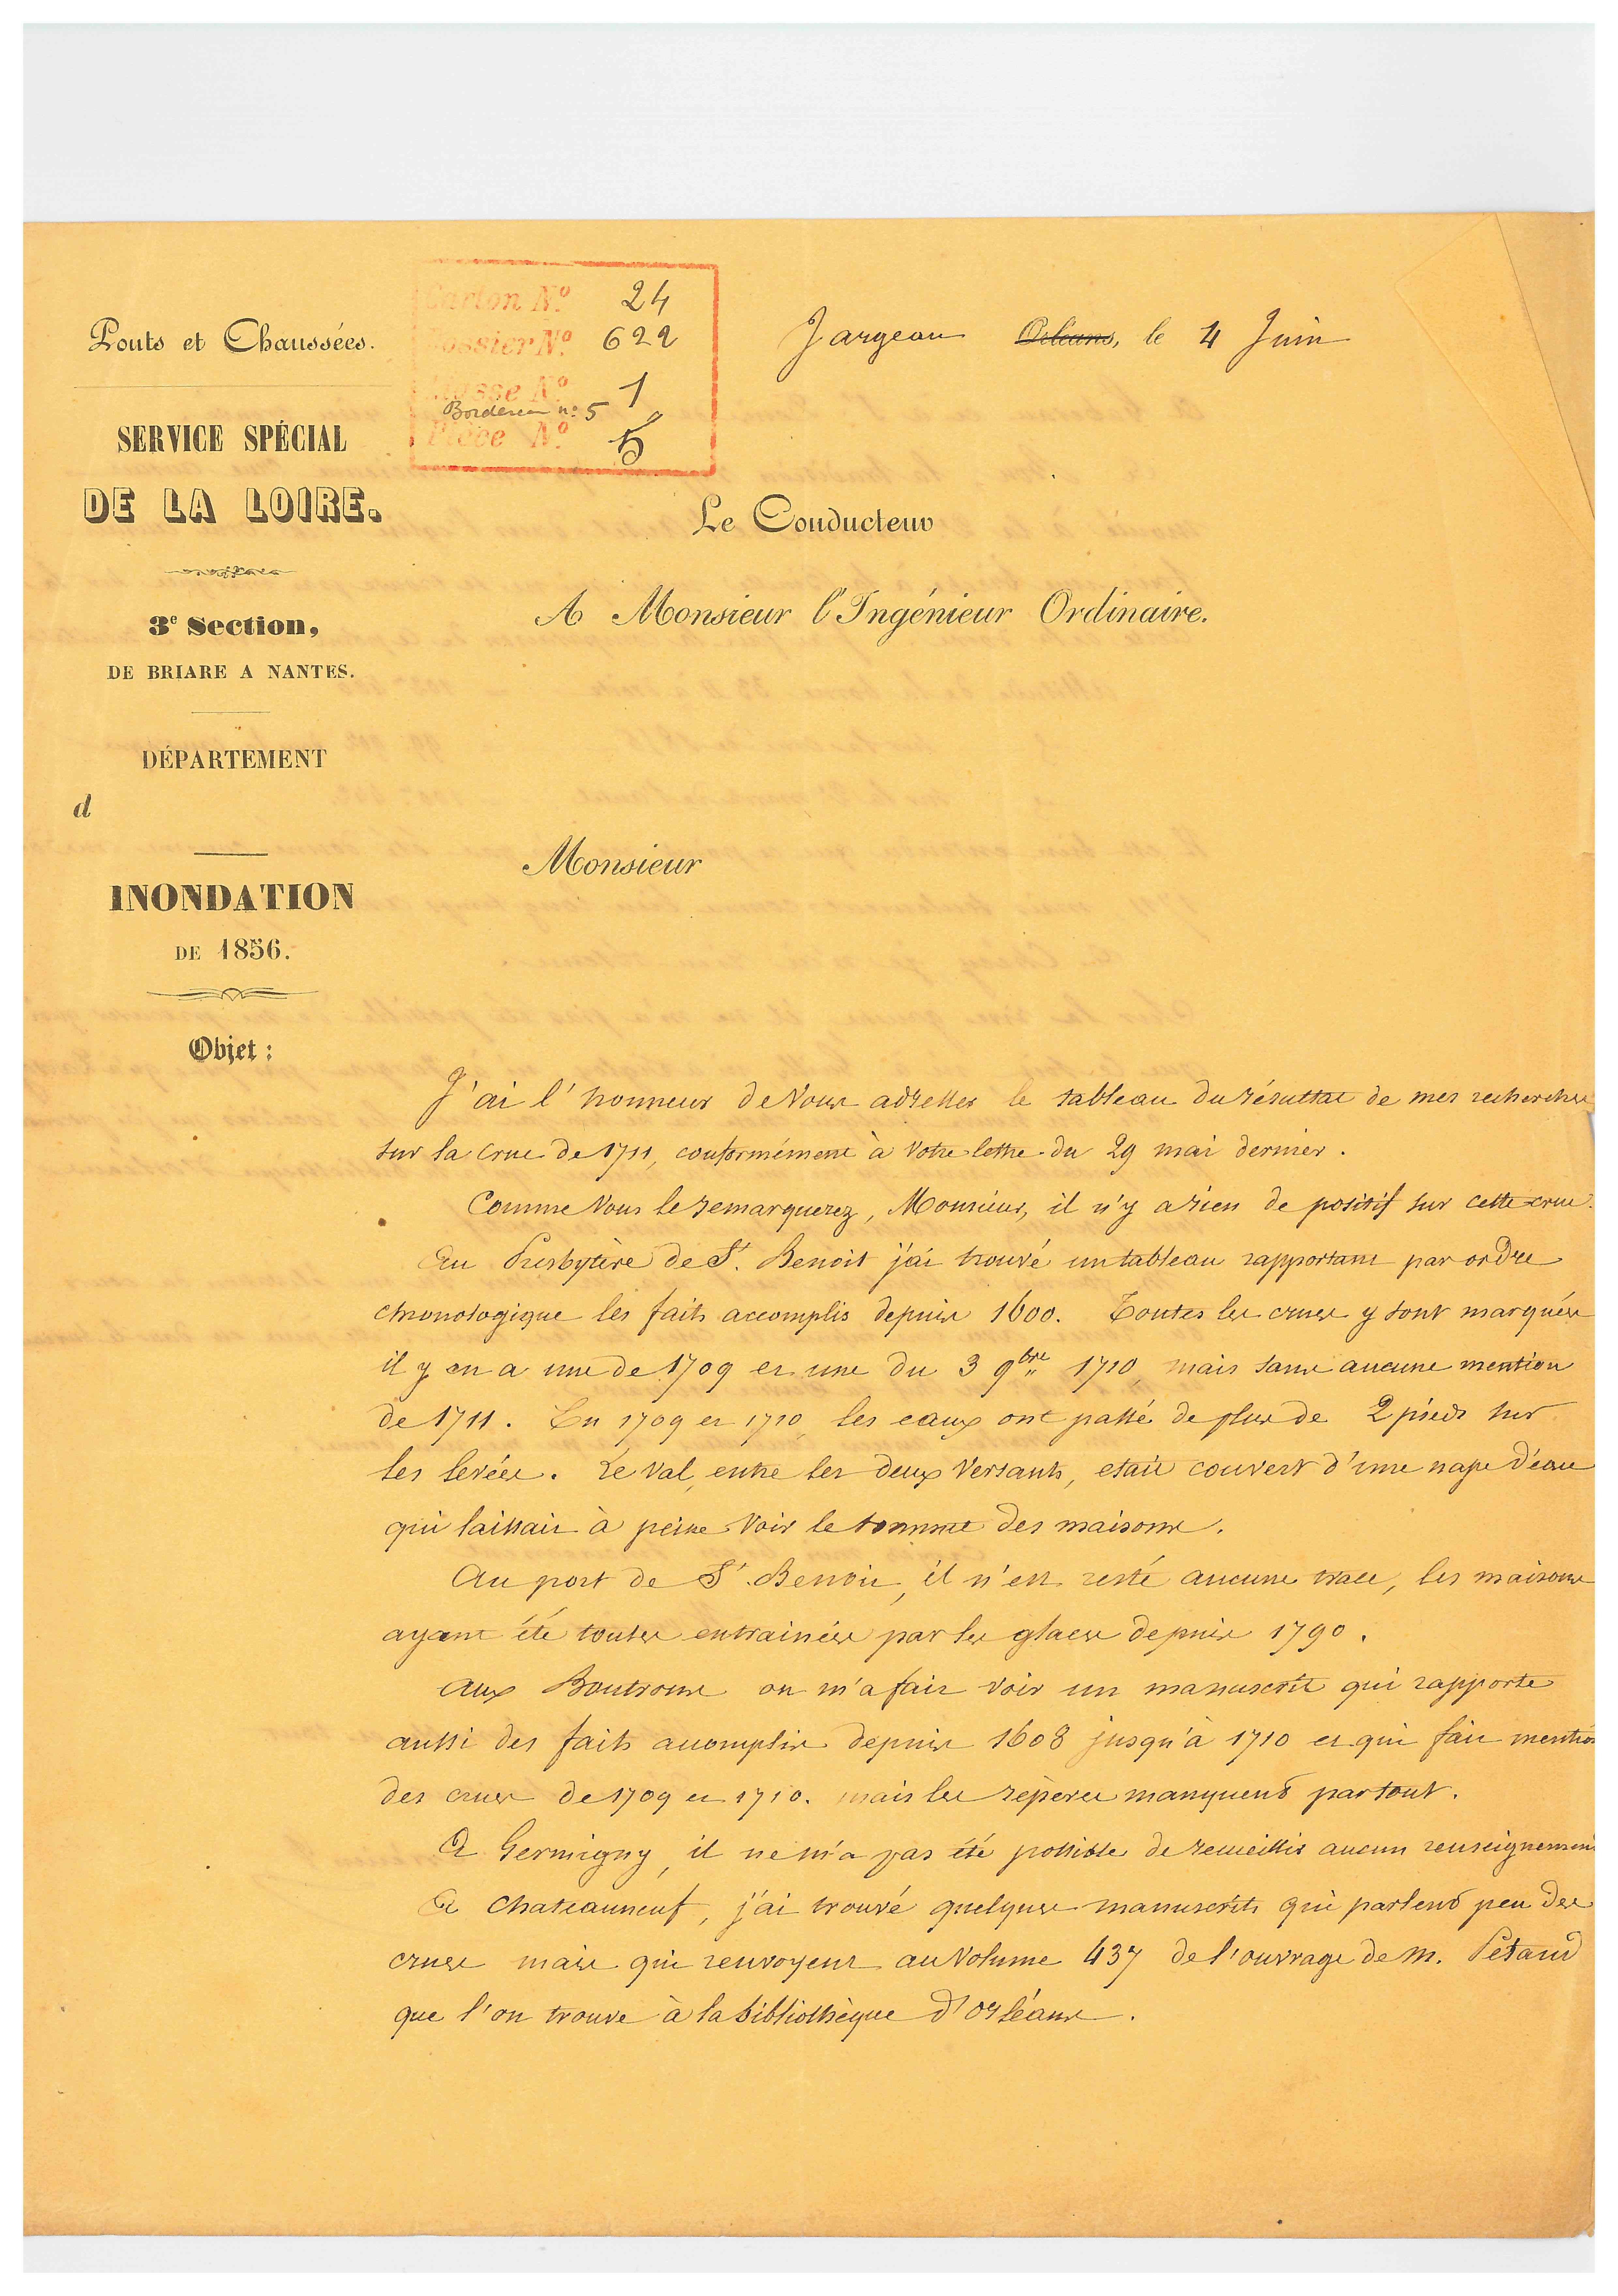 Ponts et Chaussées.
SERVICE SPÉCIAL
DE LA LOIRE.
3e Section,
DE BRIARE A NANTES.
DÉPARTEMENT
d
INONDATION
DE 1856.
Objet :
Carton N° 24
Dossier N° 622
Liasse N° 1
Bordereau n° 5
Pièce N° 5
Jargeau Orléans, le 4 Juin
Le Conducteur
A Monsieur l'Ingénieur Ordinaire.
Monsieur
J'ai l'honneur de Vous adresser le tableau du résultat de mes recherches
sur la crue de 1711, conformément à Votre lettre du 29 mai dernier.
Comme Vous le remarquerez, Monsieur, il n'y a rien de positif sur cette crue.
Au Presbytère de St. Benoit j'ai trouvé un tableau rapportant par ordre
chronologique les faits accomplis depuis 1600. Toutes les crues y sont marquées
il y en a une de 1709 et une du 3 9bre 1710, mais sans aucune mention
de 1711. En 1709 et 1710, les eaux ont passé de plus de 2 pieds sur
les levées. Le Val, entre les deux Versants, etait couvert d'une nape d'eau
qui laissait à peine Voir le somme des maisons.
Au port de St. Benoit, il n'en reste aucune trace, les maisons
ayant été toutes entrainées par les glaces depuis 1790.
Aux Boutrons on m'a fait Voir un manuscrit qui rapporte
aussi des faits acomplis depuis 1608 jusqu'à 1710 et qui fait mention
des crues de 1709 et 1710. mais les repères manquent partout.
A Germigny, il ne m'a pas été possible de recueillir aucun renseignement
A Chateauneuf, j'ai trouvé quelques manuscrits qui parlent peu des
crues mais qui renvoyent au Volume 437 de l'ouvrage de M.
que l'on trouve à la bibliothèque d'Orléans.